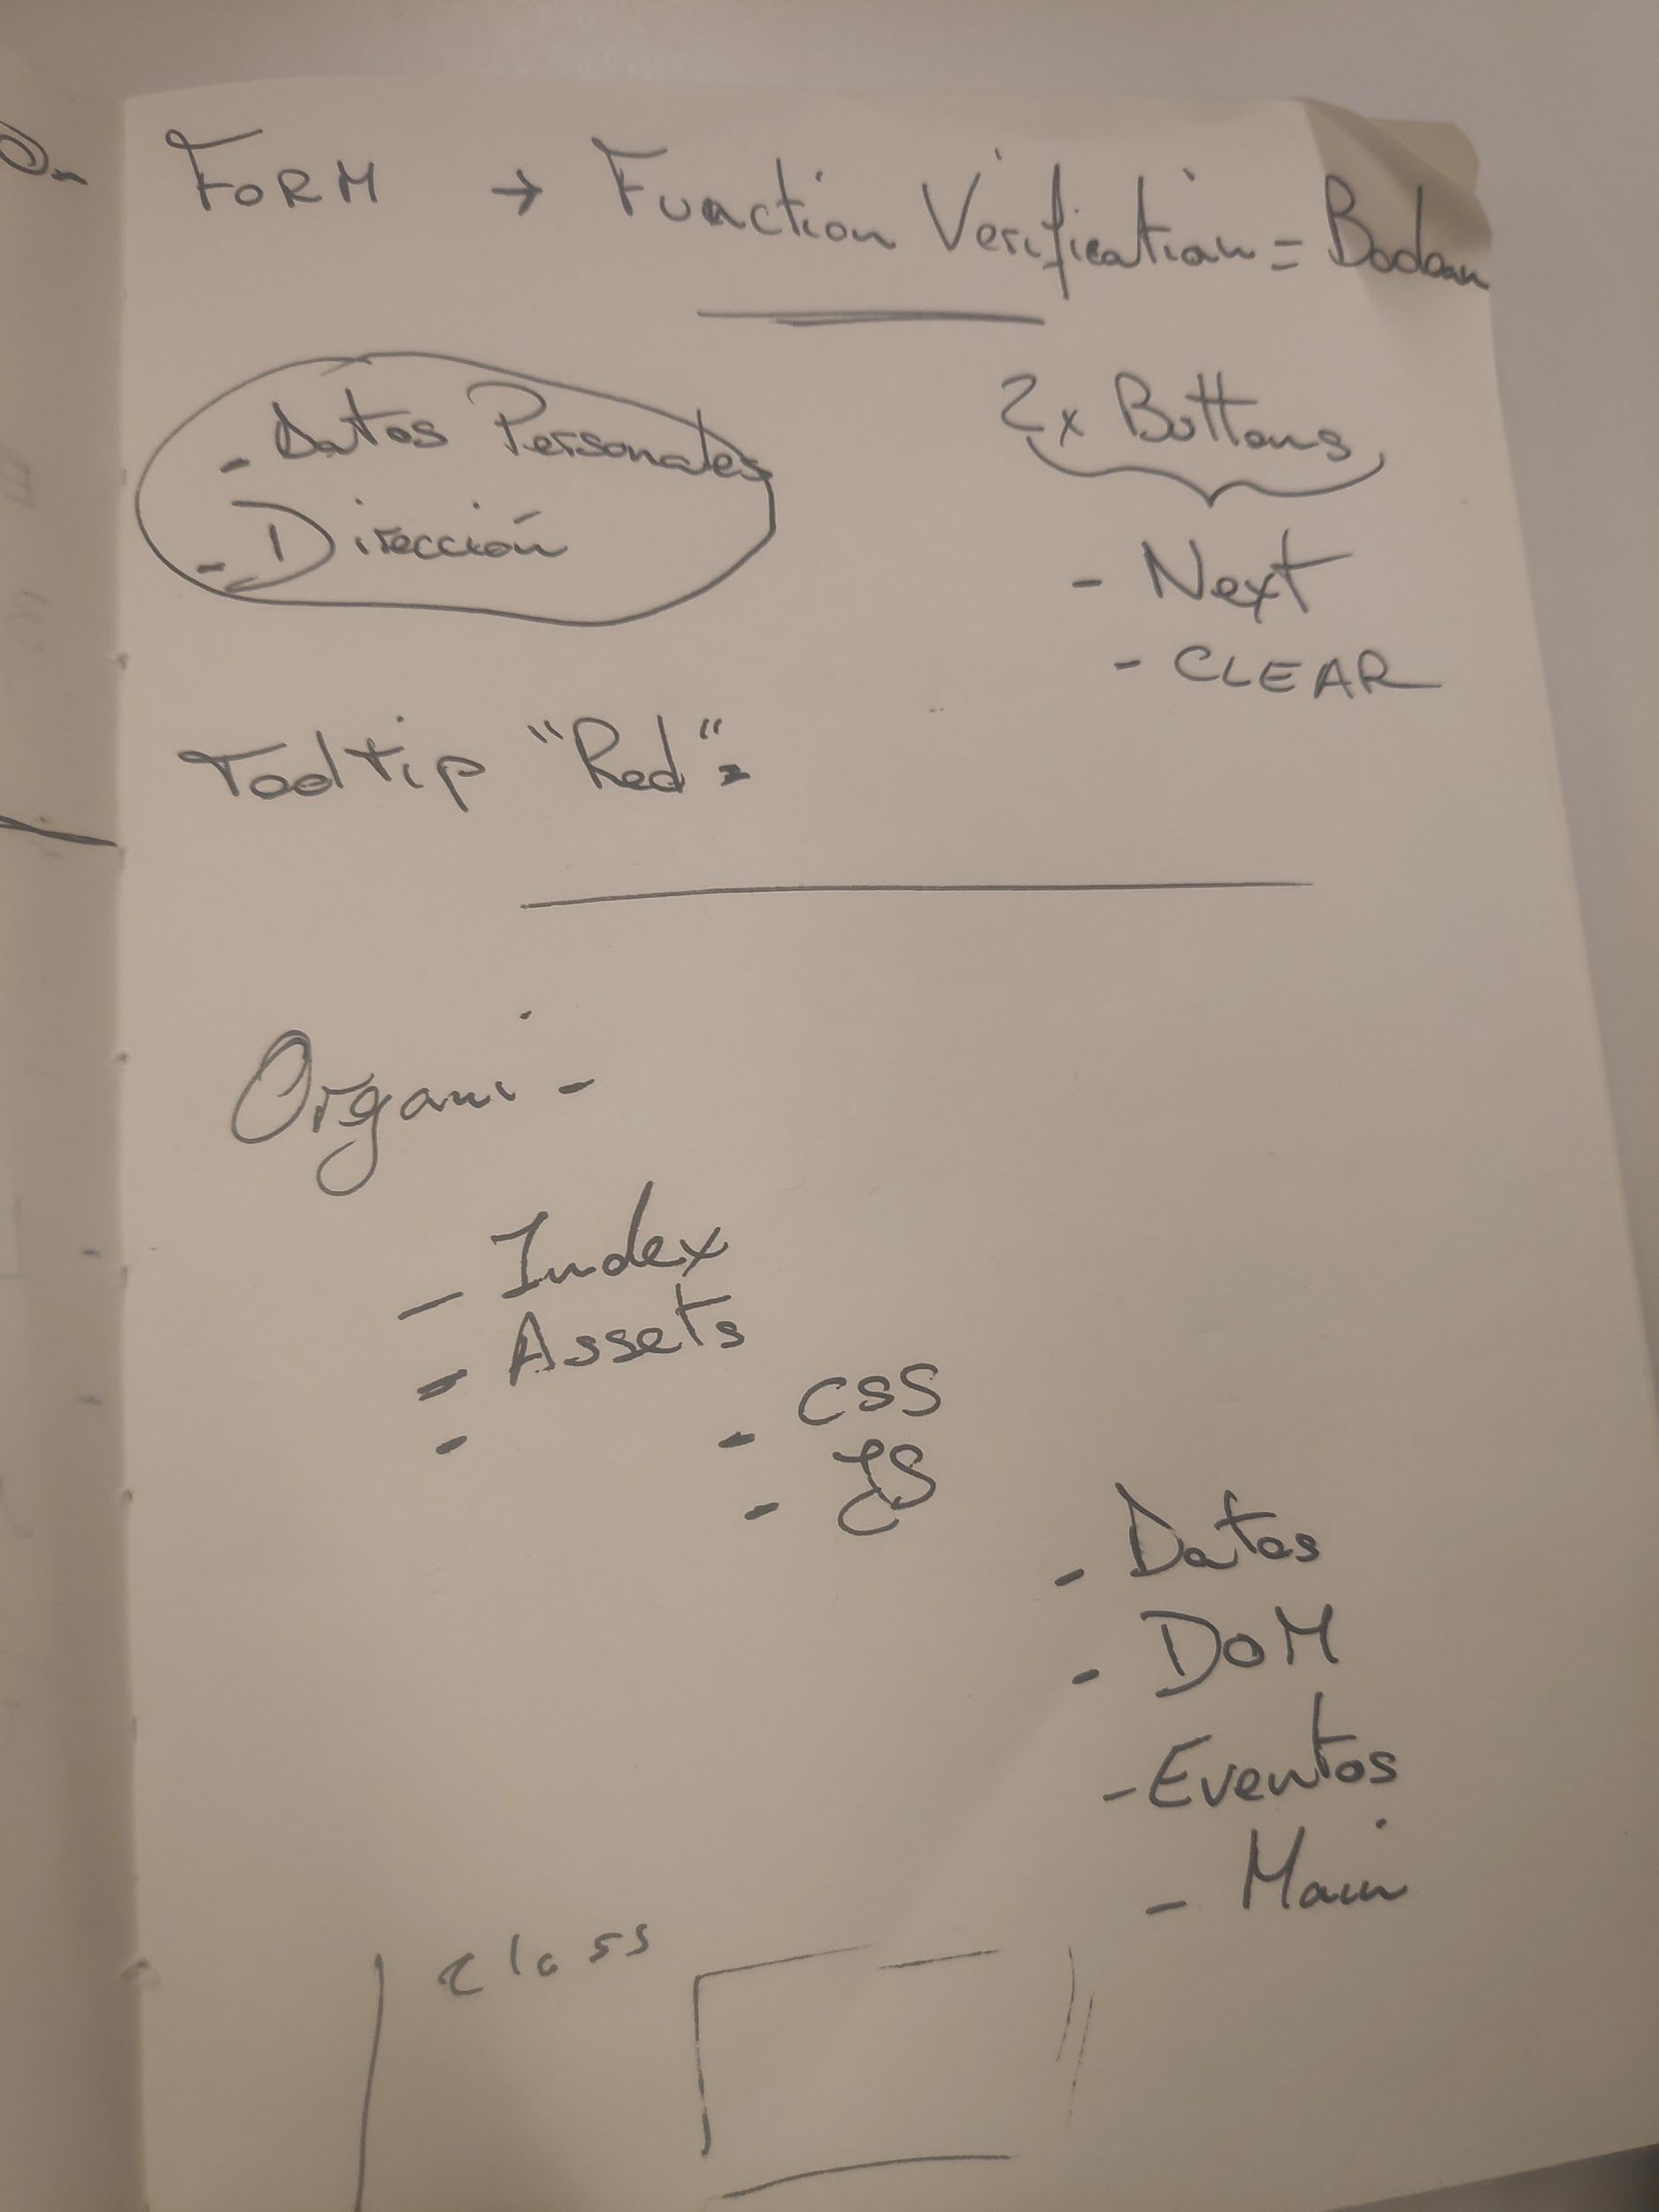 FORM → Function Verification = Boolean
- Datos Personales
- Dirección
2x Buttons
- Next
- CLEAR
Tooltip "Red"
Organi -
- Index
- Assets
- CSS
- JS
- Datos
- DOM
- Eventos
- Main
Class